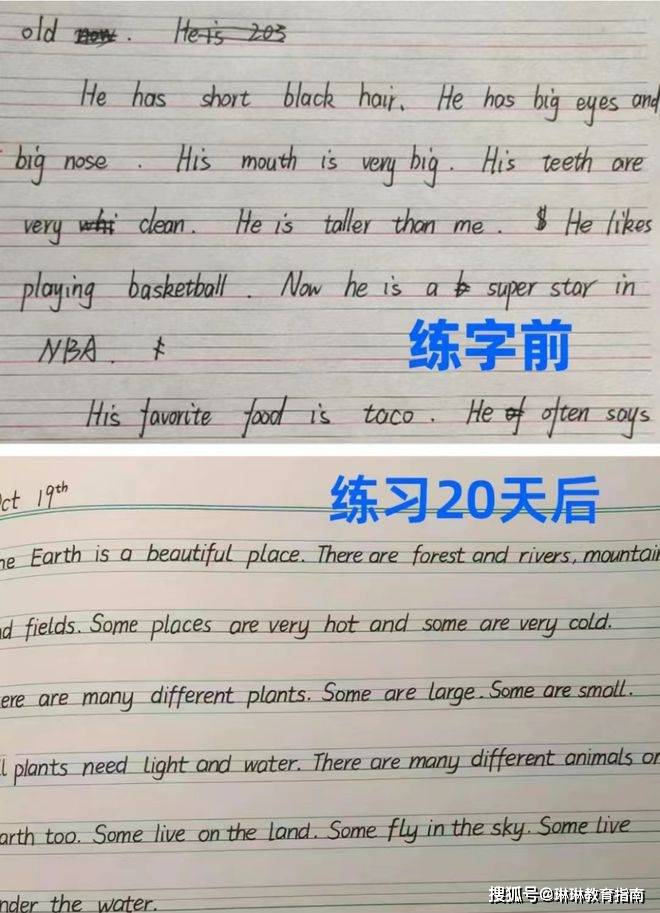 old now. He is 203
He has short black hair. He has big eyes and
big nose. His mouth is very big. His teeth are
very whi clean. He is taller than me. He likes
playing basketball. Now he is a b super star in
NBA.
练字前
His favorite food is taco. He of often says
练习20天后
ct 19th
he Earth is a beautiful place. There are forest and rivers, mountain
d fields. Some places are very hot and some are very cold.
ere are many different plants. Some are large. Some are small.
l plants need light and water. There are many different animals on
arth too. Some live on the land. Some fly in the sky. Some live
nder the water.
搜狐号@琳琳教育指南